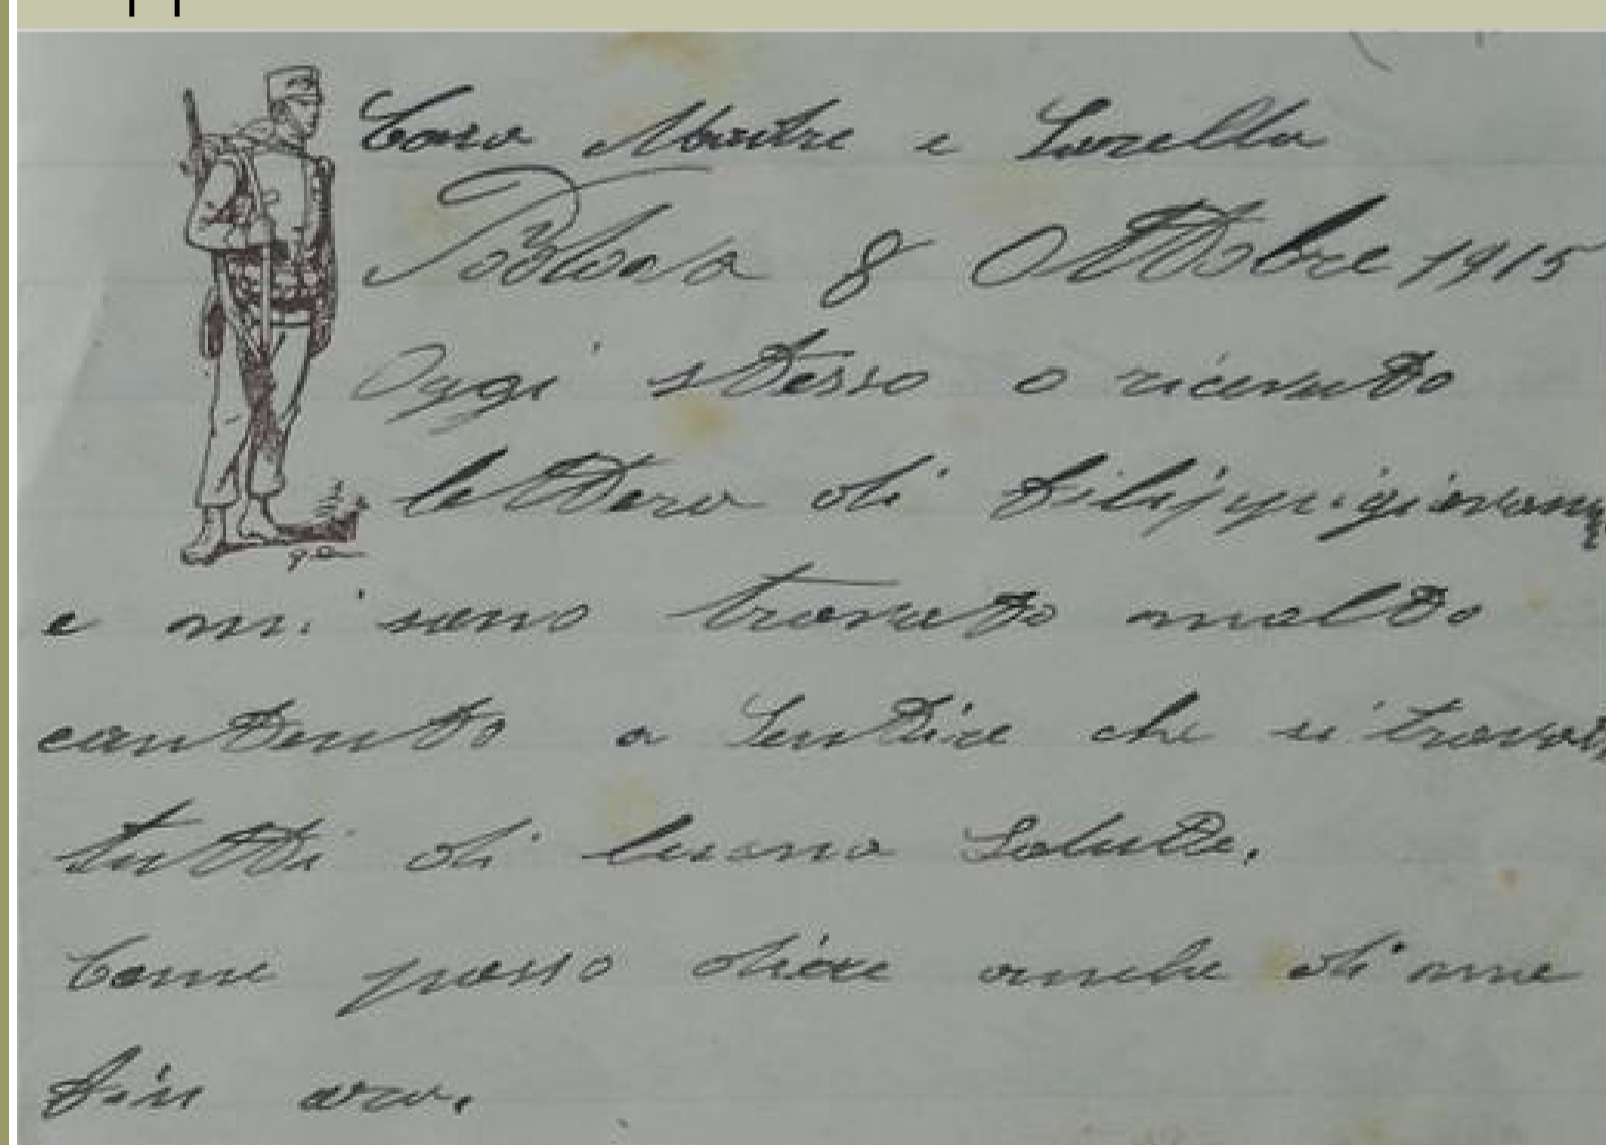 Cara Madre e Sorella
8 Ottobre 1915
Oggi stesso o ricevuto
lettera di
e mi sono trovato molto
contento a Sentire che si
tutti di buona Salute.
Come posso dire anche di me
fin ora.